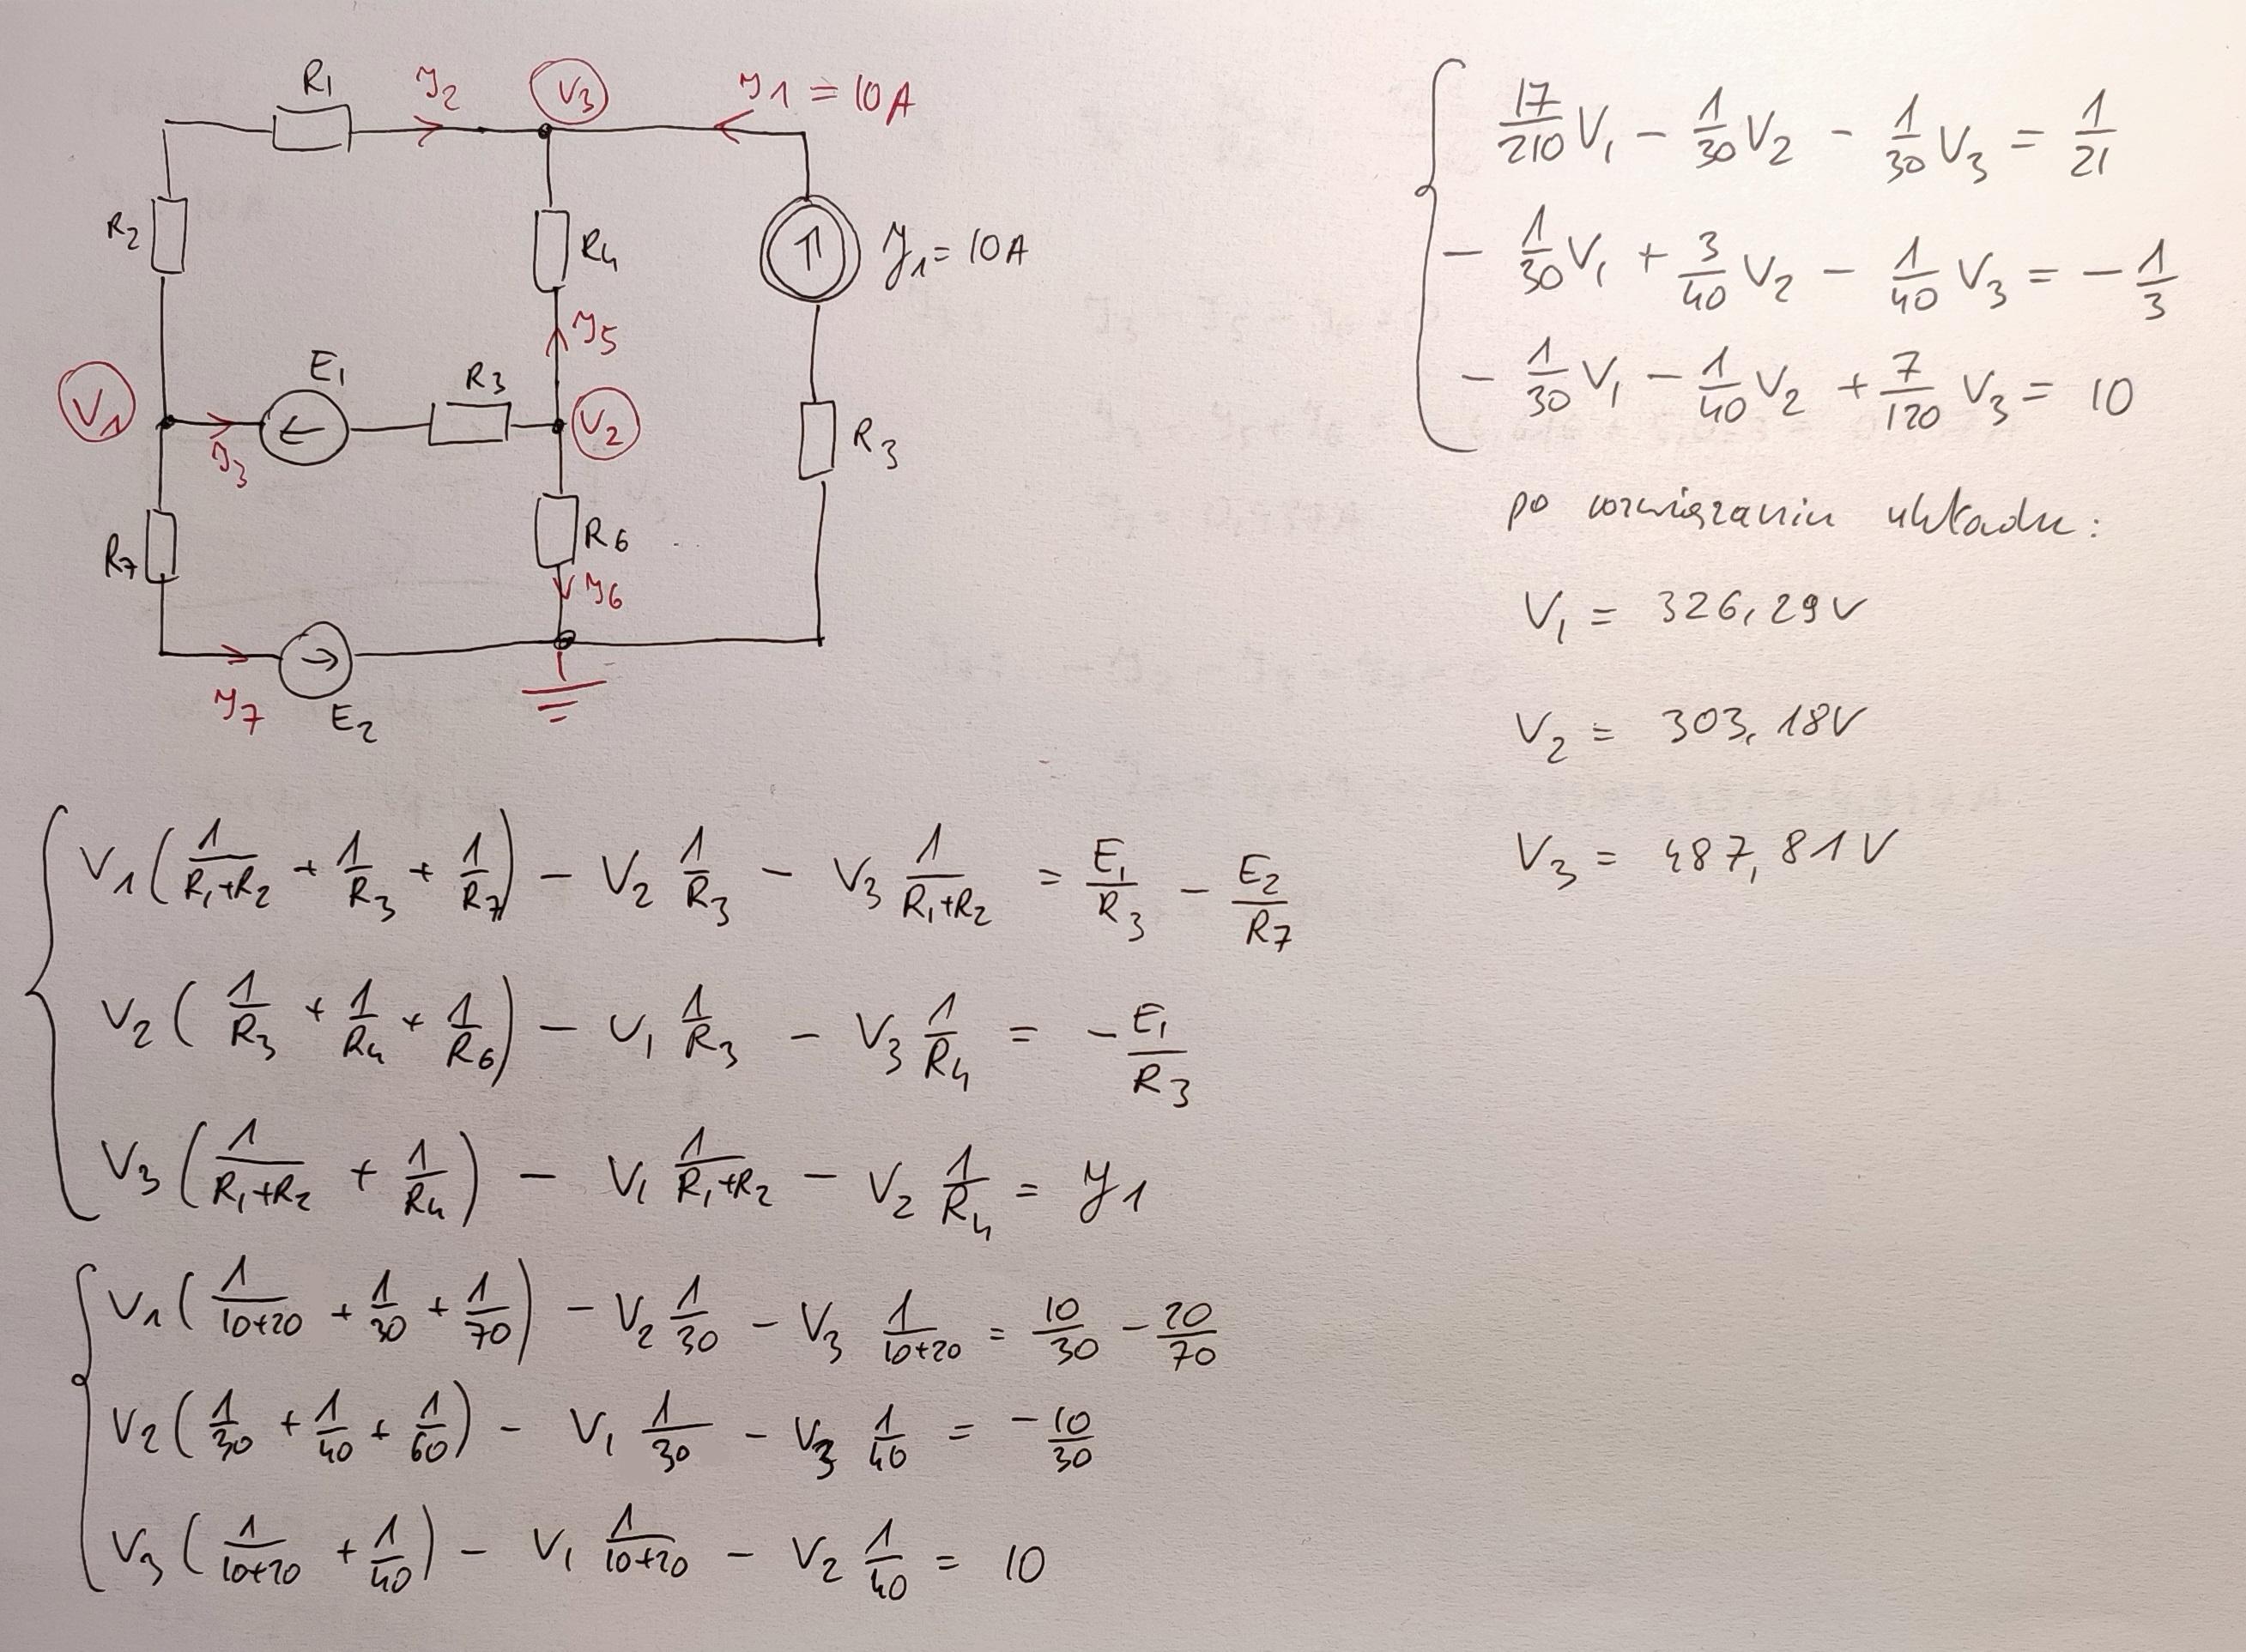 R1
J2
V3
J1 = 10A
R2
R4
J1 = 10A
J5
V1
E1
R3
V2
R3
J3
R7
R6
J6
J7
E2
V1 (1/(R1+R2) + 1/R3 + 1/R7) - V2 1/R3 - V3 1/(R1+R2) = E1/R3 - E2/R7
V2 (1/R3 + 1/R4 + 1/R6) - V1 1/R3 - V3 1/R4 = -E1/R3
V3 (1/(R1+R2) + 1/R4) - V1 1/(R1+R2) - V2 1/R4 = J1
V1 (1/(10+20) + 1/30 + 1/70) - V2 1/30 - V3 1/(10+20) = 10/30 - 20/70
V2 (1/30 + 1/40 + 1/60) - V1 1/30 - V3 1/40 = -10/30
V3 (1/(10+20) + 1/40) - V1 1/(10+20) - V2 1/40 = 10
17/210 V1 - 1/30 V2 - 1/30 V3 = 1/21
- 1/30 V1 + 3/40 V2 - 1/40 V3 = - 1/3
- 1/30 V1 - 1/40 V2 + 7/120 V3 = 10
po rozwiązaniu układu:
V1 = 326,29V
V2 = 303,18V
V3 = 487,81V